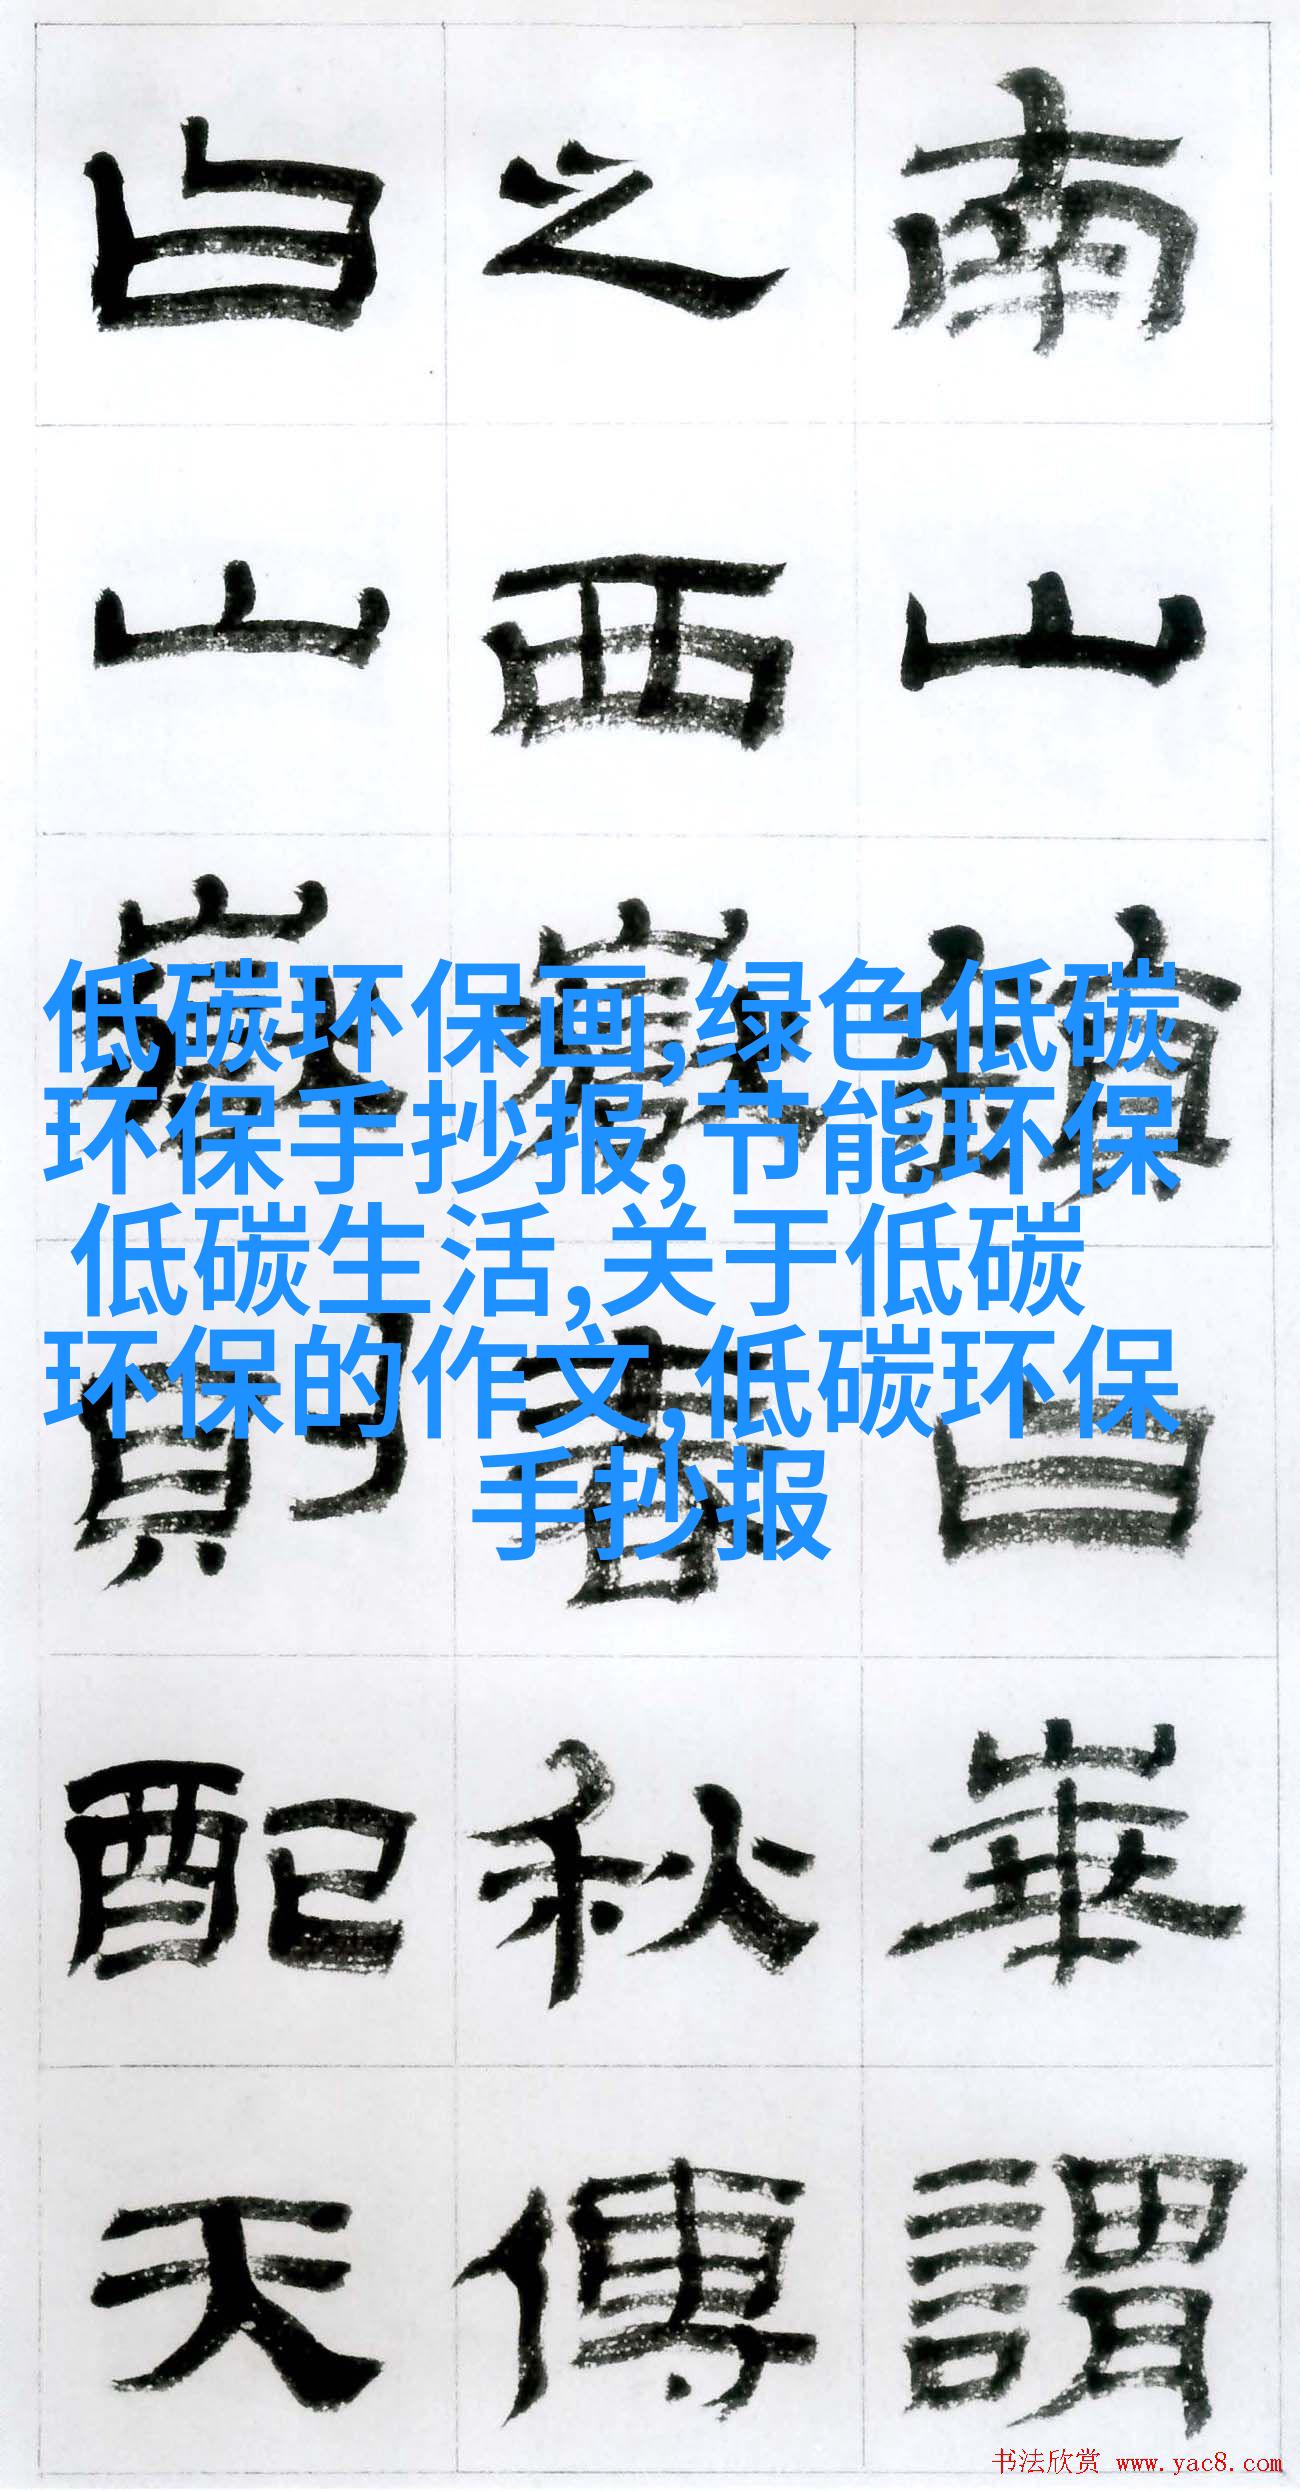 南山鎮曰崋謂
之西嶽春秋傳
曰山嶽則配天
低碳环保画,绿色低碳
环保手抄报,节能环保
低碳生活,关于低碳
环保的作文,低碳环保
手抄报
书法欣赏 www.yac8.com